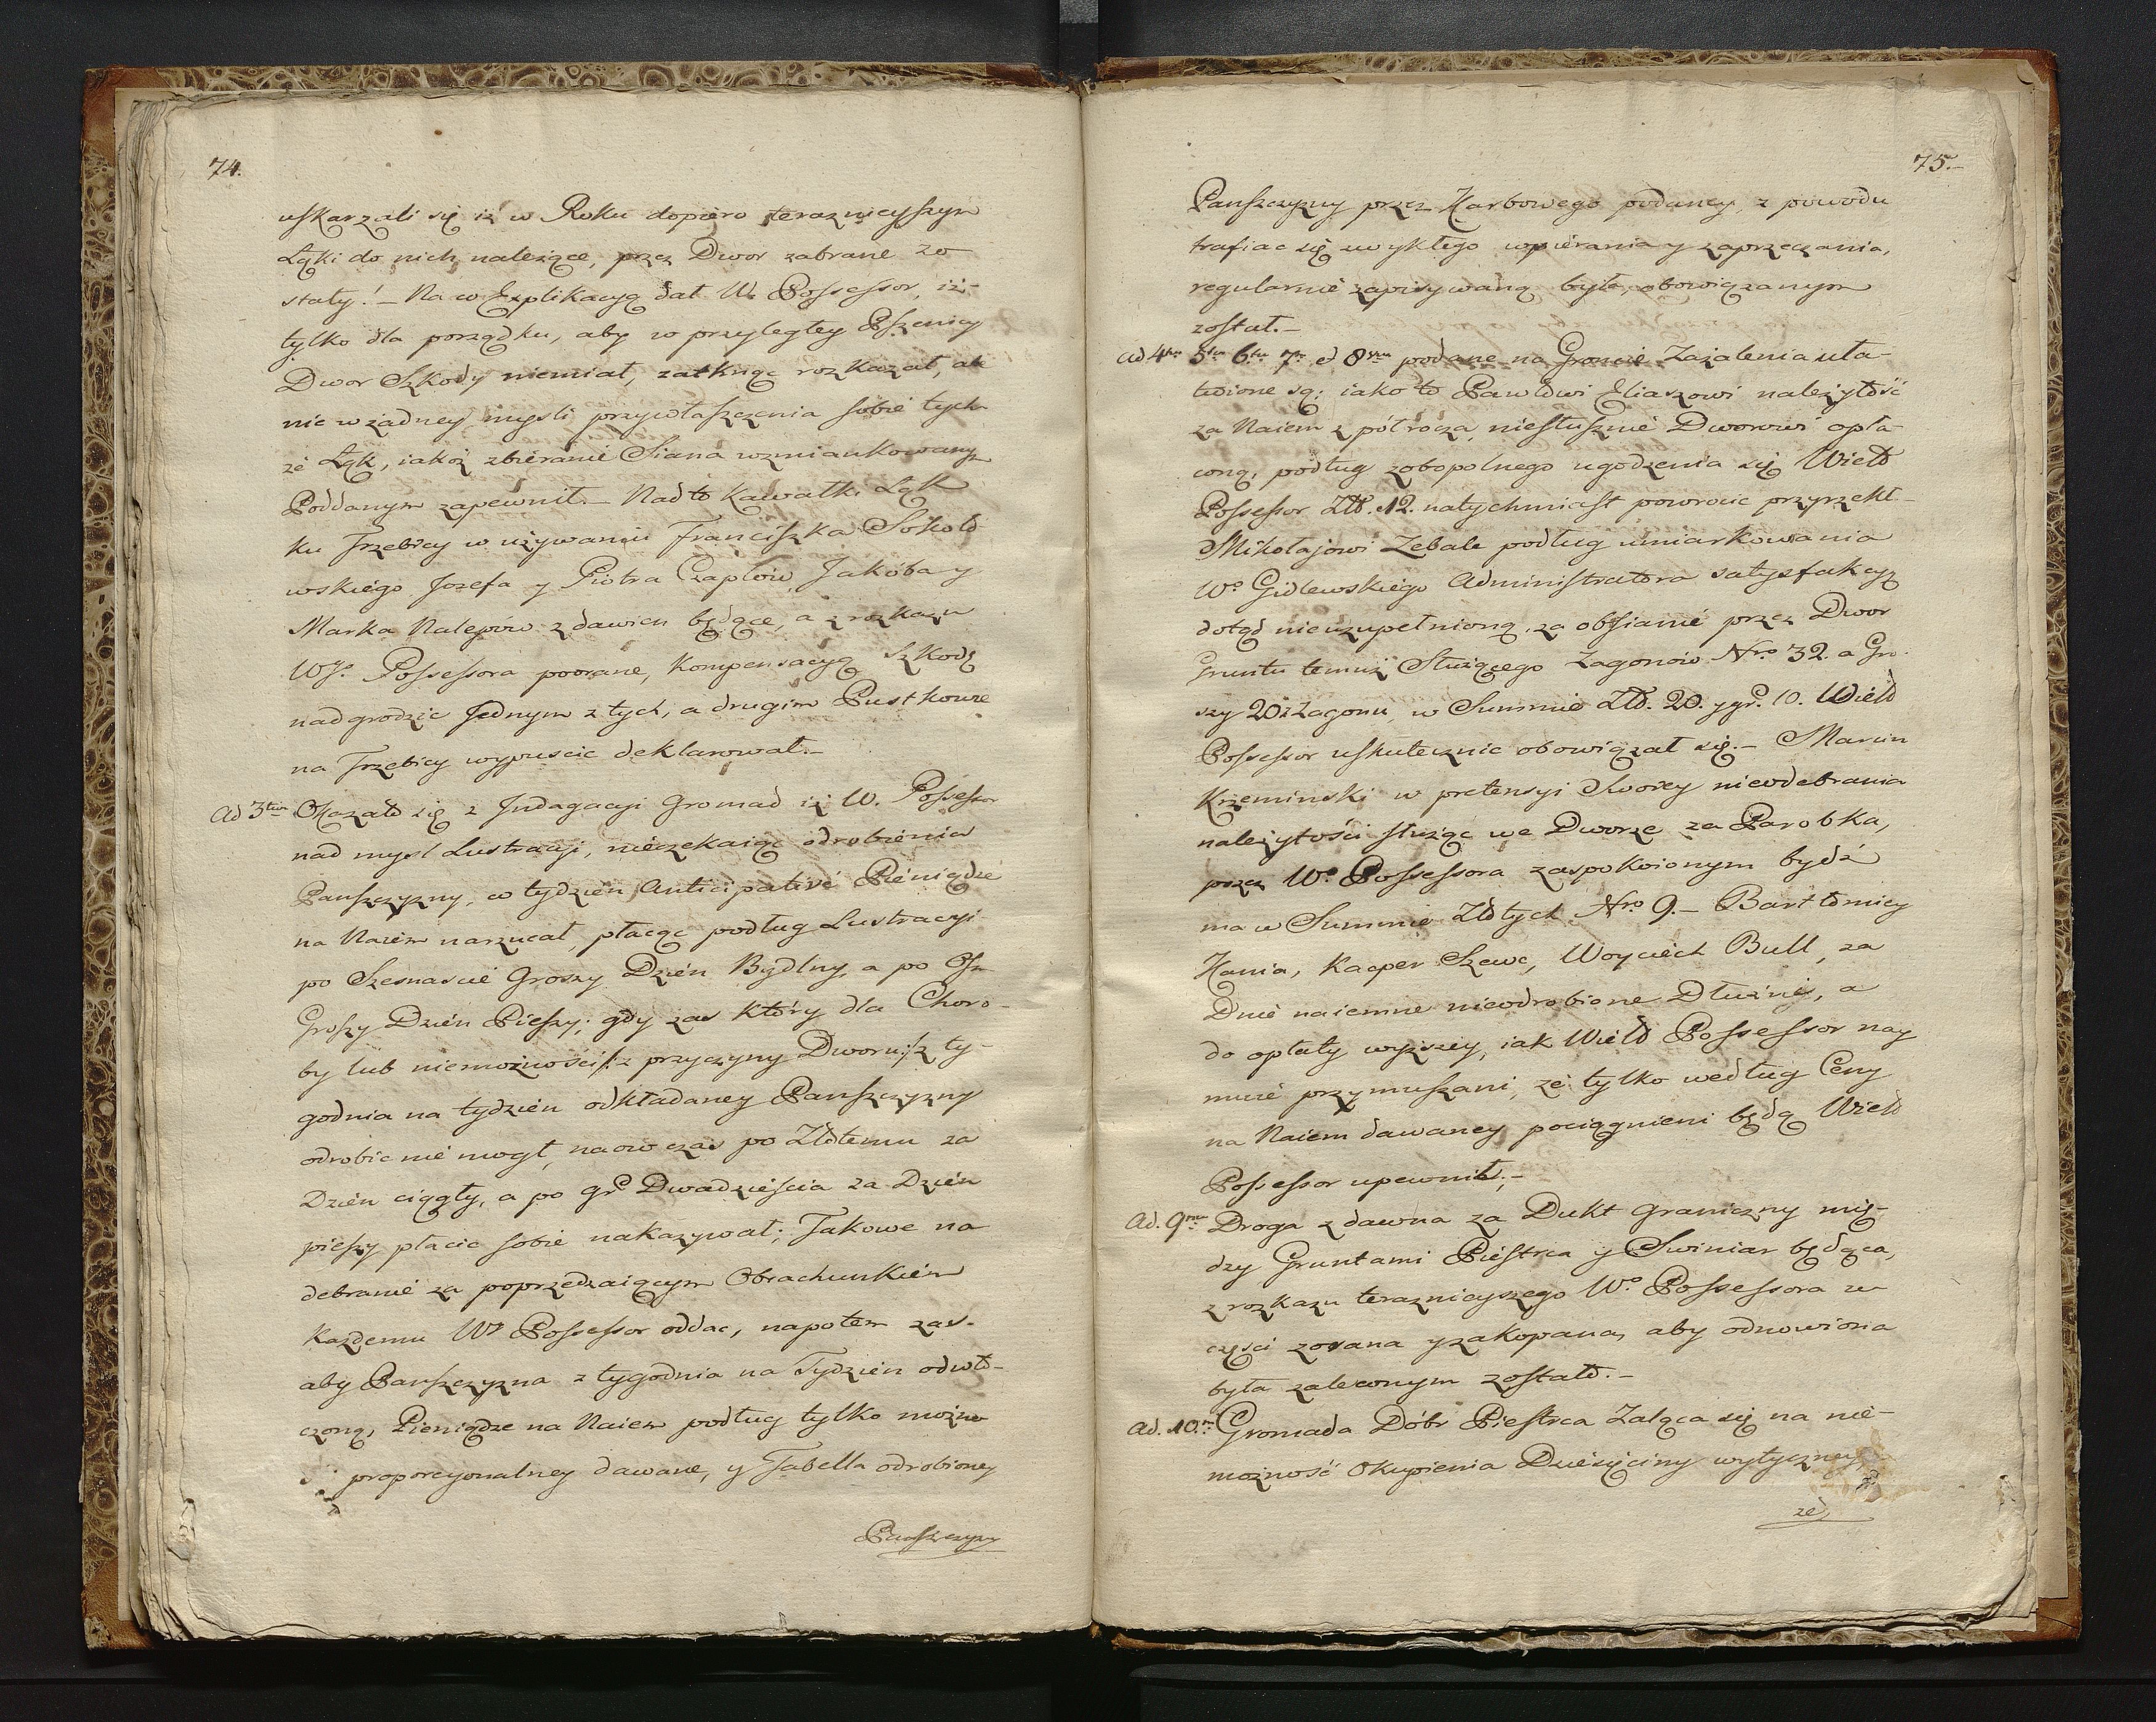 74.
uskarzali się iż w Roku dopiero teraznieyszym
Łąki do nich należące, przez Dwor zabrane zo
stały! – Na w Explikacyą dał W. Possessor, iż-
tylko dla porządku, aby w przyległey Pszenicy
Dwor Szkody niemiał, zatknąc rozkazał, ale
nie w żadney mysli przywłaszczenia sobie tych-
że Łąk, iakoż zbieranie Siana wzmiankowanym
Poddanym zapewnił. – Nadto Kawałki Łąk
ku Trzebicy w używaniu Franciszka Sokoło
wskiego Jozefa y Piotra Czaplow, Jakóba y
Marka Nalepów zdawien będące, a z rozkazu
Wgo. Possessora poorane, Kompensacyą Szkody
nadgrodzic Jednym z tych, a drugim Pustkowie
na Trzebicy wypuscic deklarował. –
Ad 3tium Okazało się z Indagacyi Gromad iż W. Possessor
nad mysl Lustracyi, nieczekaiąc odrobienia
Panszczyzny, co tydzien Anticipative Pieniądze
na Naiem narzucał, płacąc podług Lustracyi
po Szesnascie Groszy Dzien Bydlny, a po Osm
Groszy Dzien Pieszy; gdy zas który dla Choro-
by lub niemożności /: z przyczyny Dworu :/ z ty-
godnia na tydzien odkładaney Panszczyzny
odrobic nie mogł, naowczas po Złotemu za
Dzien ciągły, a po gr. Dwadzieścia za Dzien
pieszy płacic sobie nakazywał; Takowe na
debranie za poprzedzaiącym Obrachunkiem
Kazdemu Wo Possessor oddac, napotem zas-
aby Panszczyzna z tygodnia na Tydzien odwło-
czoną, Pieniądze na Naiem podług tylko możno
proporcyonalney dawane, y Tabella odrobioney
Panszczyzny
75. –
Panszczyzny przez Karbowego podaney, z powodu
trafiac się zwykłego wpierania y zaprzeczania,
regularnie zapisywaną była, obowiązanym
został. –
Ad 4tum 5tum 6tum 7um et 8vum podane na Groncie Zażalenia uła-
twione są; iako to Pawłowi Eliaszowi należytość
za Naiem z pół rocza, niesłusznie Dworowi opła-
coną, podług zobopolnego ugodzenia się Wielo
Possessor Złł. 12. natychmiast powrocic przyrzekł –
Mikołajowi Zebale podług umiarkowania
Wo Gidlewskiego Administratora satysfakcyą
dotąd nieuzupełnioną, za obsianie przez Dwor
Gruntu temuż Służącego Zagonów Nro 32. a Gro-
szy 20 z Zagonu, w Summie Złł. 20. y gr. 10. Wielo
Possessor uskutecznic obowiązał się. – Marcin
Krzeminski w pretensyi Swoiey nieodebrania
należytości służąc we Dworze za Parobka,
przez Wo Possessora zaspokoionym bydź
ma w Summie Złotych Nro 9. – Bartłomiey
Kania, Kacper Szewc, Woyciech Bull, za
Dnie naiemne nieodrobione Dłużni, a
do opłaty wyższey, iak Wielo Possessor nay
muie przymuszani, że tylko według Ceny
na Naiem dawaney pociągnieni będą Wielo
Possessor upewnił; –
Ad. 9num Droga z dawna za Dukt graniczny mię-
dzy Gruntami Piestrca y Swiniar będąca,
z rozkazu teraznieyszego Wo. Possessora w
częsci zorana y zakopana, aby odnowiona
była zaleconym zostało. –
Ad. 10m Gromada Dóbr Piestrca Żaląca się na nie-
możność Okupienia Dziesięciny wytyczney,
że